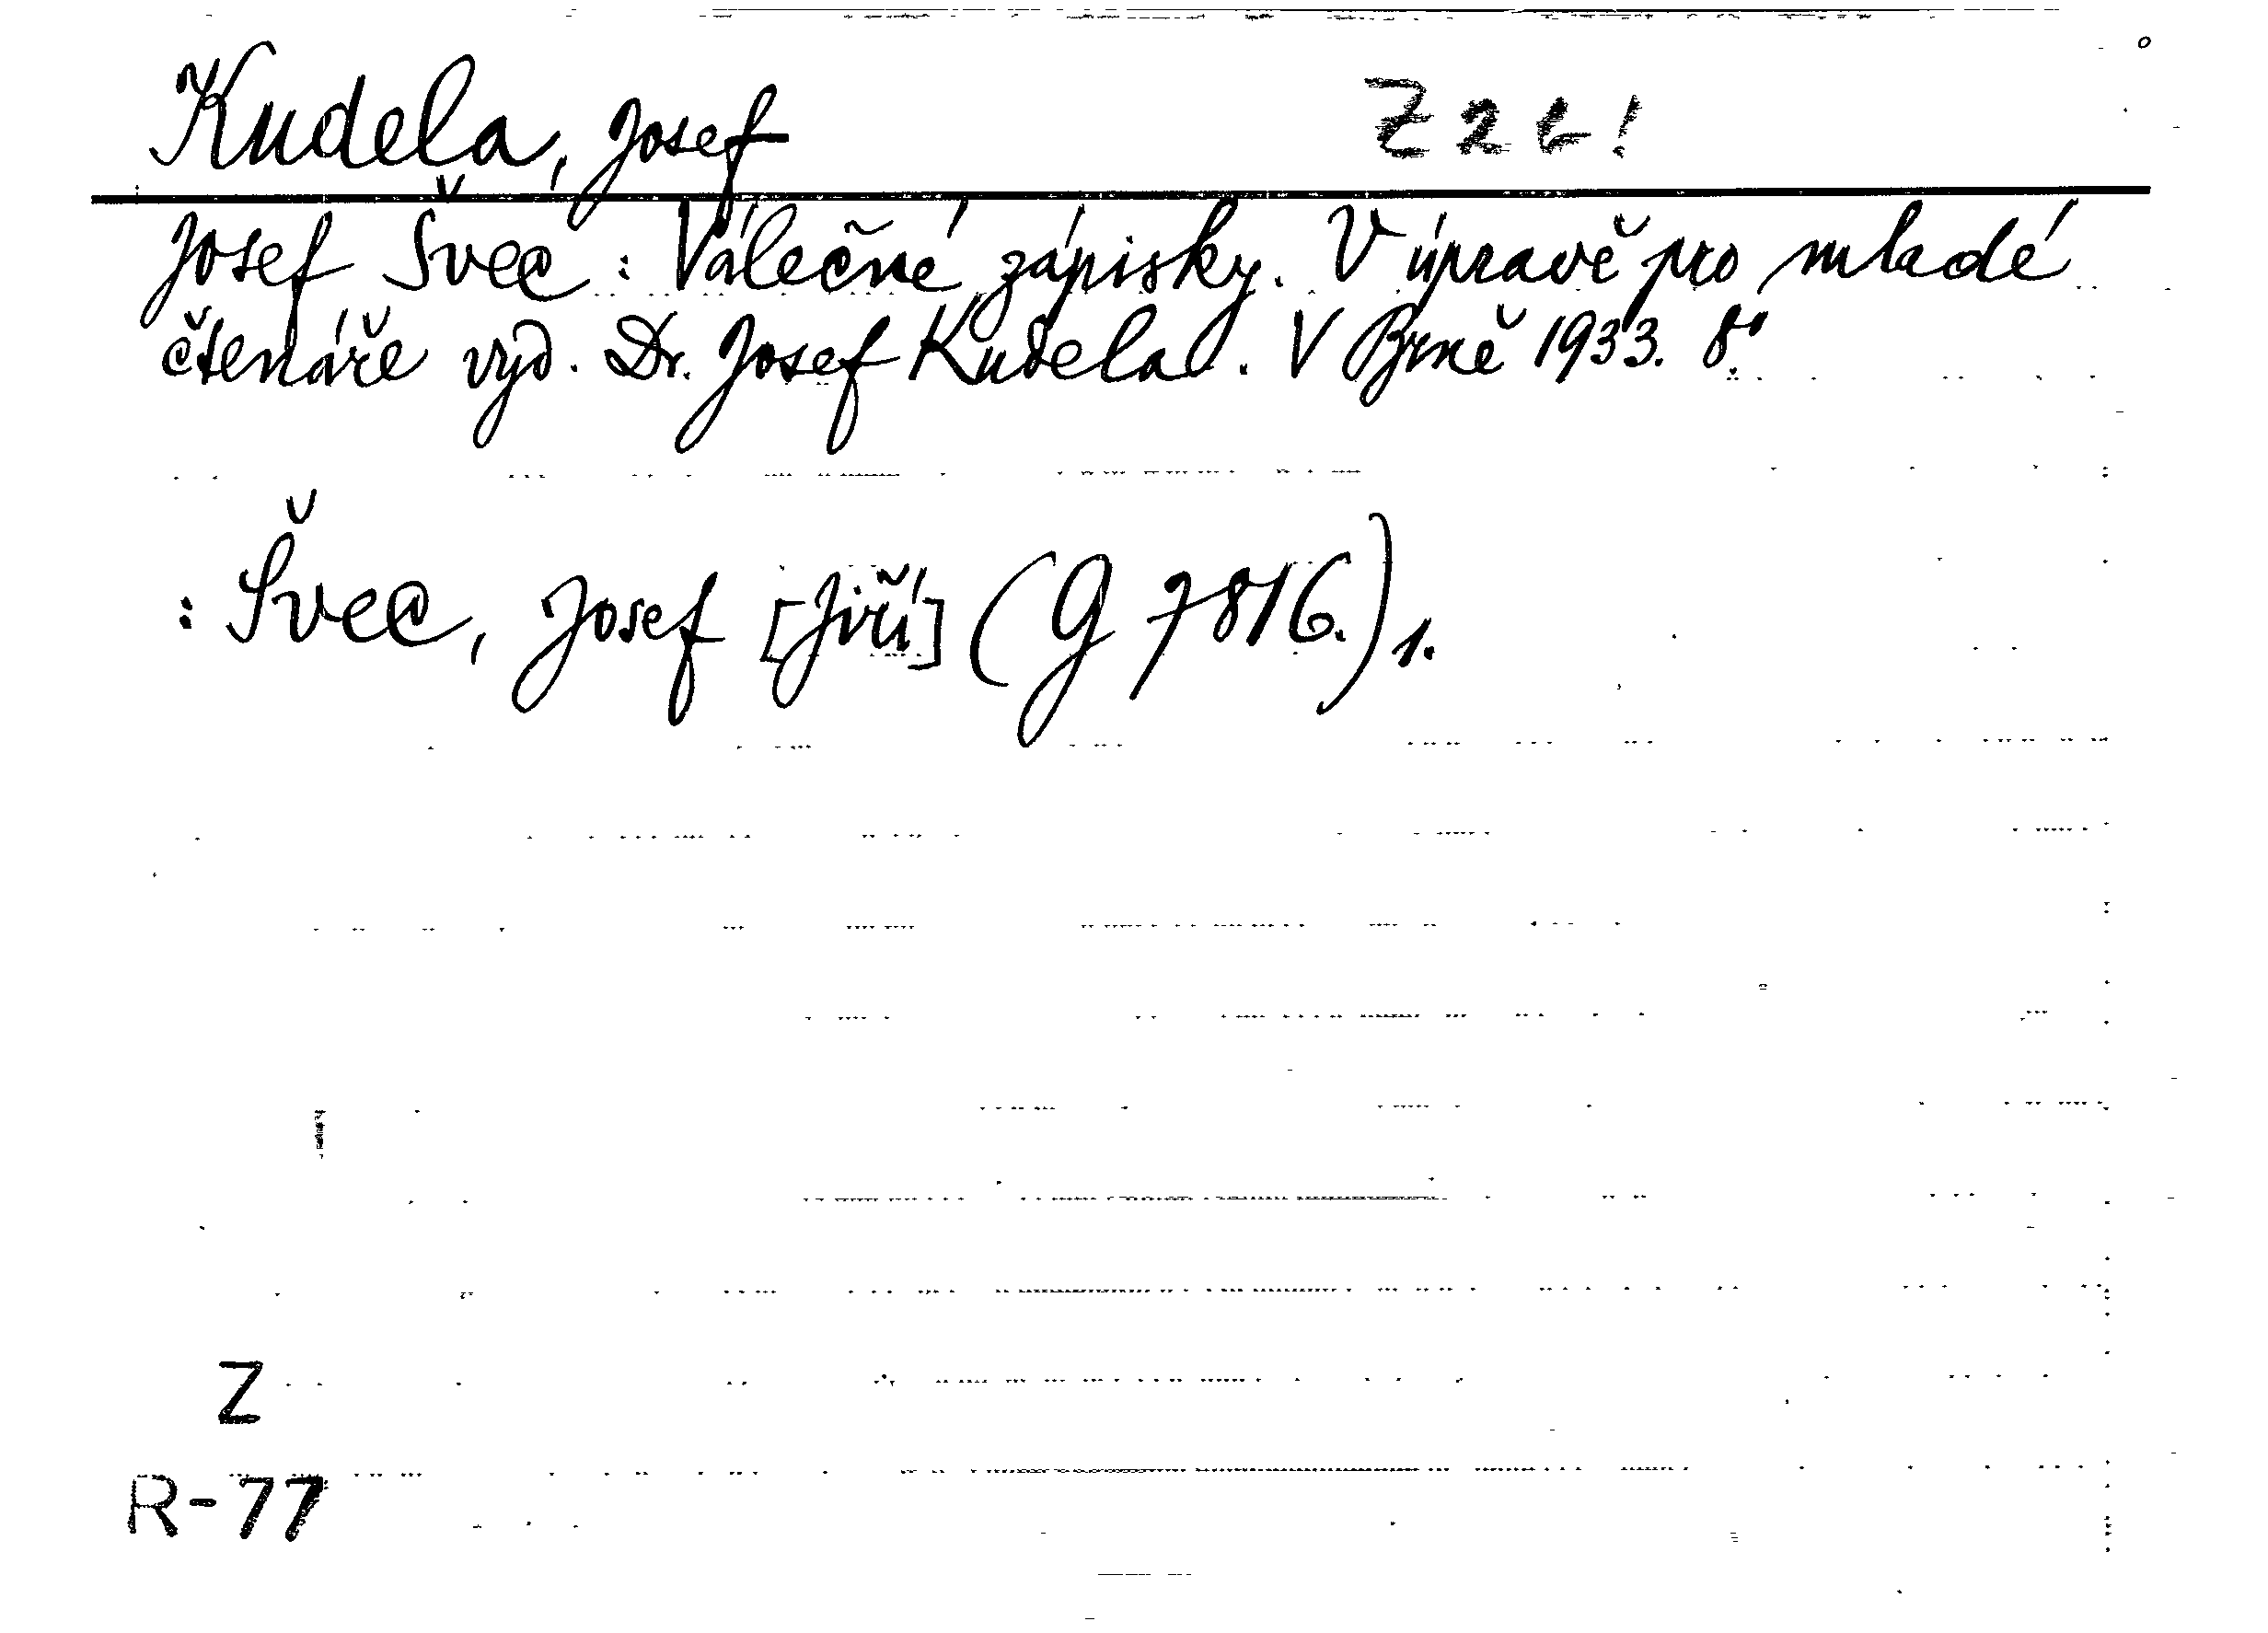 Kudela, Josef
Josef Švec : Válečné zápisky. V úpravě pro mladé
čtenáře vyd. Dr. Josef Kudela. V Brně 1933. 8°.
: Švec, Josef [Jiří] (G 7816.) 1.
Z
R-77